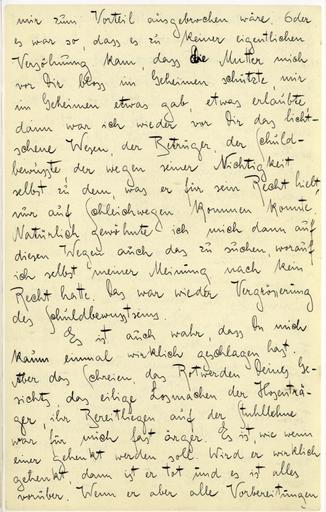 mir zum Vorteil ausgebrochen wäre. Oder
es war so, dass es zu keiner eigentlichen
Versöhnung kam, dass die Mutter mich
vor Dir bloss im Geheimen schützte, mir
im Geheimen etwas gab, etwas erlaubte
dann war ich wieder vor Dir das licht-
scheue Wesen, der Betrüger, der Schuld-
bewusste, der wegen seiner Nichtigkeit
selbst zu dem, was er für sein Recht hielt
nur auf Schleichwegen kommen konnte.
Natürlich gewöhnte ich mich dann auf
diesen Wegen auch das zu suchen, worauf
ich selbst meiner Meinung nach kein
Recht hatte. Das war wieder Vergrösserung
des Schuldbewusstseins.
Es ist auch wahr, dass Du mich
kaum einmal wirklich geschlagen hast.
Aber das Schreien, das Rotwerden Deines Ge-
sichts, das eilige Losmachen der Hosenträ-
ger, ihr Bereitliegen auf der Stuhllehne
war für mich fast ärger. Es ist, wie wenn
einer gehenkt werden soll. Wird er wirklich
gehenkt, dann ist er tot und es ist alles
vorüber. Wenn er aber alle Vorbereitungen